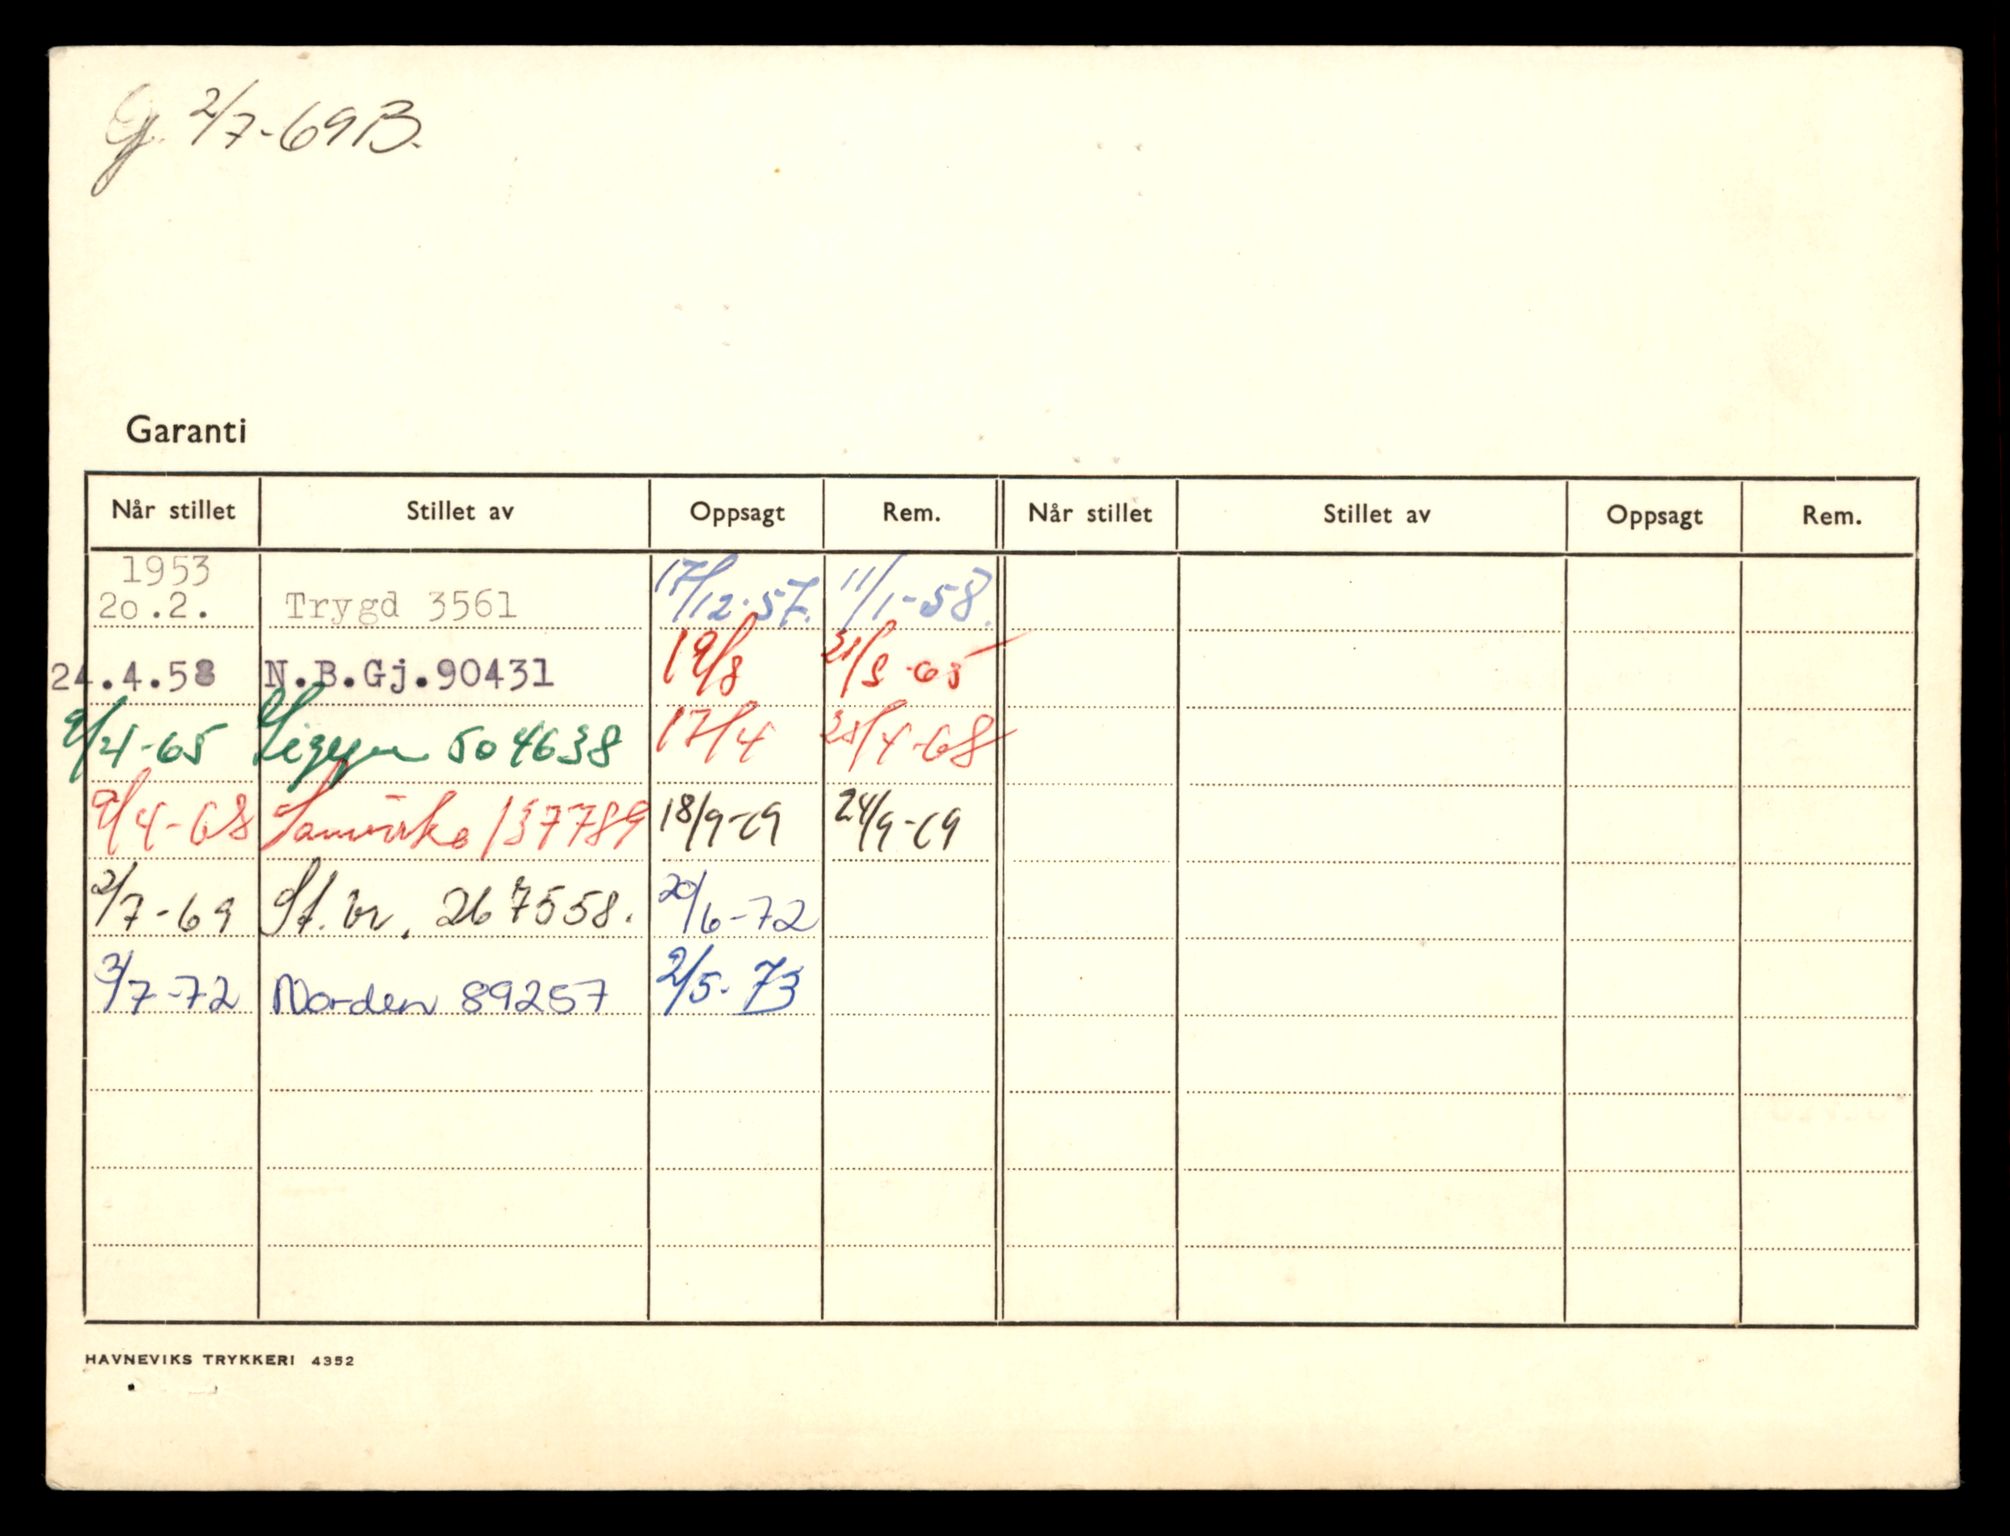 G. 2/7-69 B.
Garanti
Når stillet Stillet av Oppsagt Rem. Når stillet Stillet av Oppsagt Rem.
1953
20.2. Trygd 3561 17/12-57. 11/1-58.
24.4.58 N.B.Gj.90431 19/8 31/8-65
9/4-65 504638 17/4 23/4-68
9/4-68 Samvirke 137789 18/9-69 24/9-69
2/7-69 St.br. 267558. 20/6-72
3/7-72 Norden 89257 2/5-73
HAVNEVIKS TRYKKERI 4352